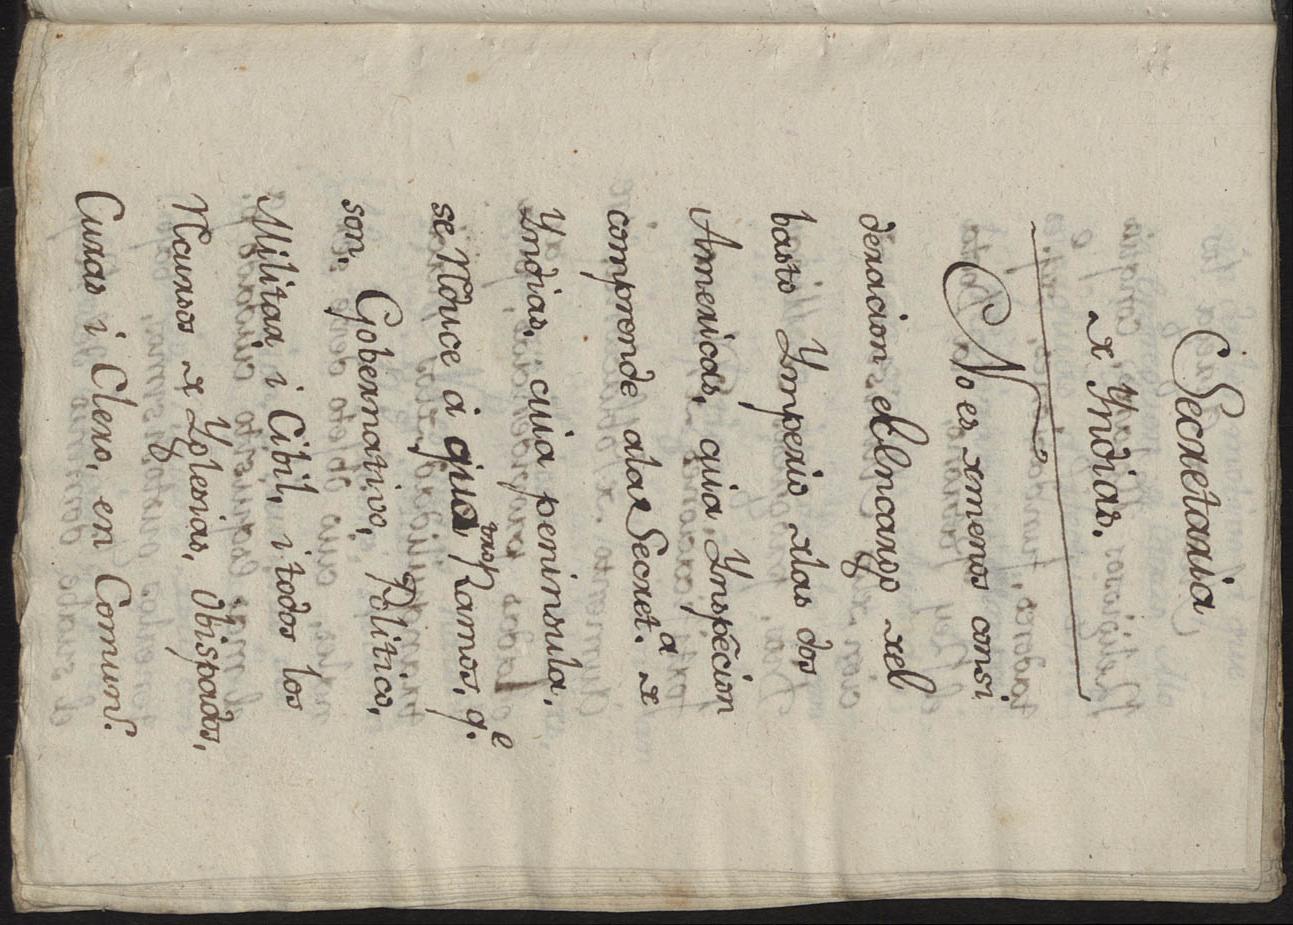 Secretaria
de Yndias.
No es de menos consi
deracion el Encargo del
basto Ymperio delas dos
Americas, cuia Ynspēcion
comprende ala Secret.ª de
Yndias, cuia peninsula,
se Reduce á quatro Ramos, q.e
son. Gobernativo, Politico,
Militar i Cibil, i todos los
Recursos de Yglesias, Obispados,
Curas i Clero, en Comun.